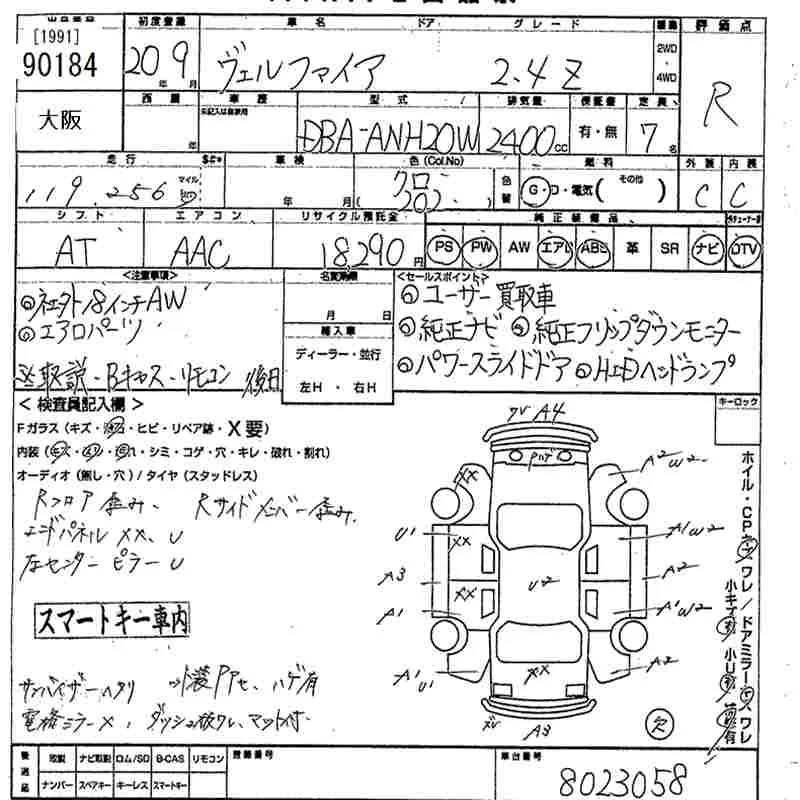 初度登録 車名 ドア グレード 評価点
[1991]
90184 20年9月 ヴェルファイア 2.4Z 2WD・4WD R
大阪
車歴 型式 排気量 保証書 定員
年 未記入は自家用 DBA-ANH20W 2400cc 有・無 7名
走行 車検 色(Col.No) 燃料 外装 内装
119,256 マイル 年 月 クロ (202) 色替 G・D・電気( その他 ) C C
シフト エアコン リサイクル預託金 純正装備品
AT AAC 18,290円 PS PW AW エアB ABS 革 SR ナビ TV
<注意事項> 名変期限 <セールスポイント>
◎社外18インチAW 月 日 ◎ユーザー買取車
◎エアロパーツ 輸入車 ◎純正ナビ ◎純正フリップダウンモニター
ディーラー・並行 ◎パワースライドドア ◎HIDヘッドランプ
※取説・Bキャス・リモコン 後日 左H ・ 右H
<検査員記入欄> キーロック
Fガラス(キズ・ ・ヒビ・リペア跡・X要)
内装(キズ・ ・ ・シミ・コゲ・穴・キレ・破れ・割れ)
オーディオ(無し・穴)/タイヤ(スタッドレス)
Rフロア歪み、 Rサイドメンバー歪み、
エンドパネルXX、U
左センターピラーU
スマートキー車内
サンバイザーヘタリ 内装Pアセ、ハゲ有
電格ミラーX、ダッシュ板ワレ、マット付
A4
Pハゲ
XX A2W2
U1 XX A1W2
A3 U2 A2
A1 XX A1W2
A1 U1 XX A2
A3
欠
ホイル・CP・キズ・ワレ/ドアミラーキズ・ワレ
小キズ 小U 有
後送品 取説 ナビ取説 ロム/SD B-CAS リモコン 登録番号 車台番号
ナンバー スペアキー キーレス スマートキー 8023058